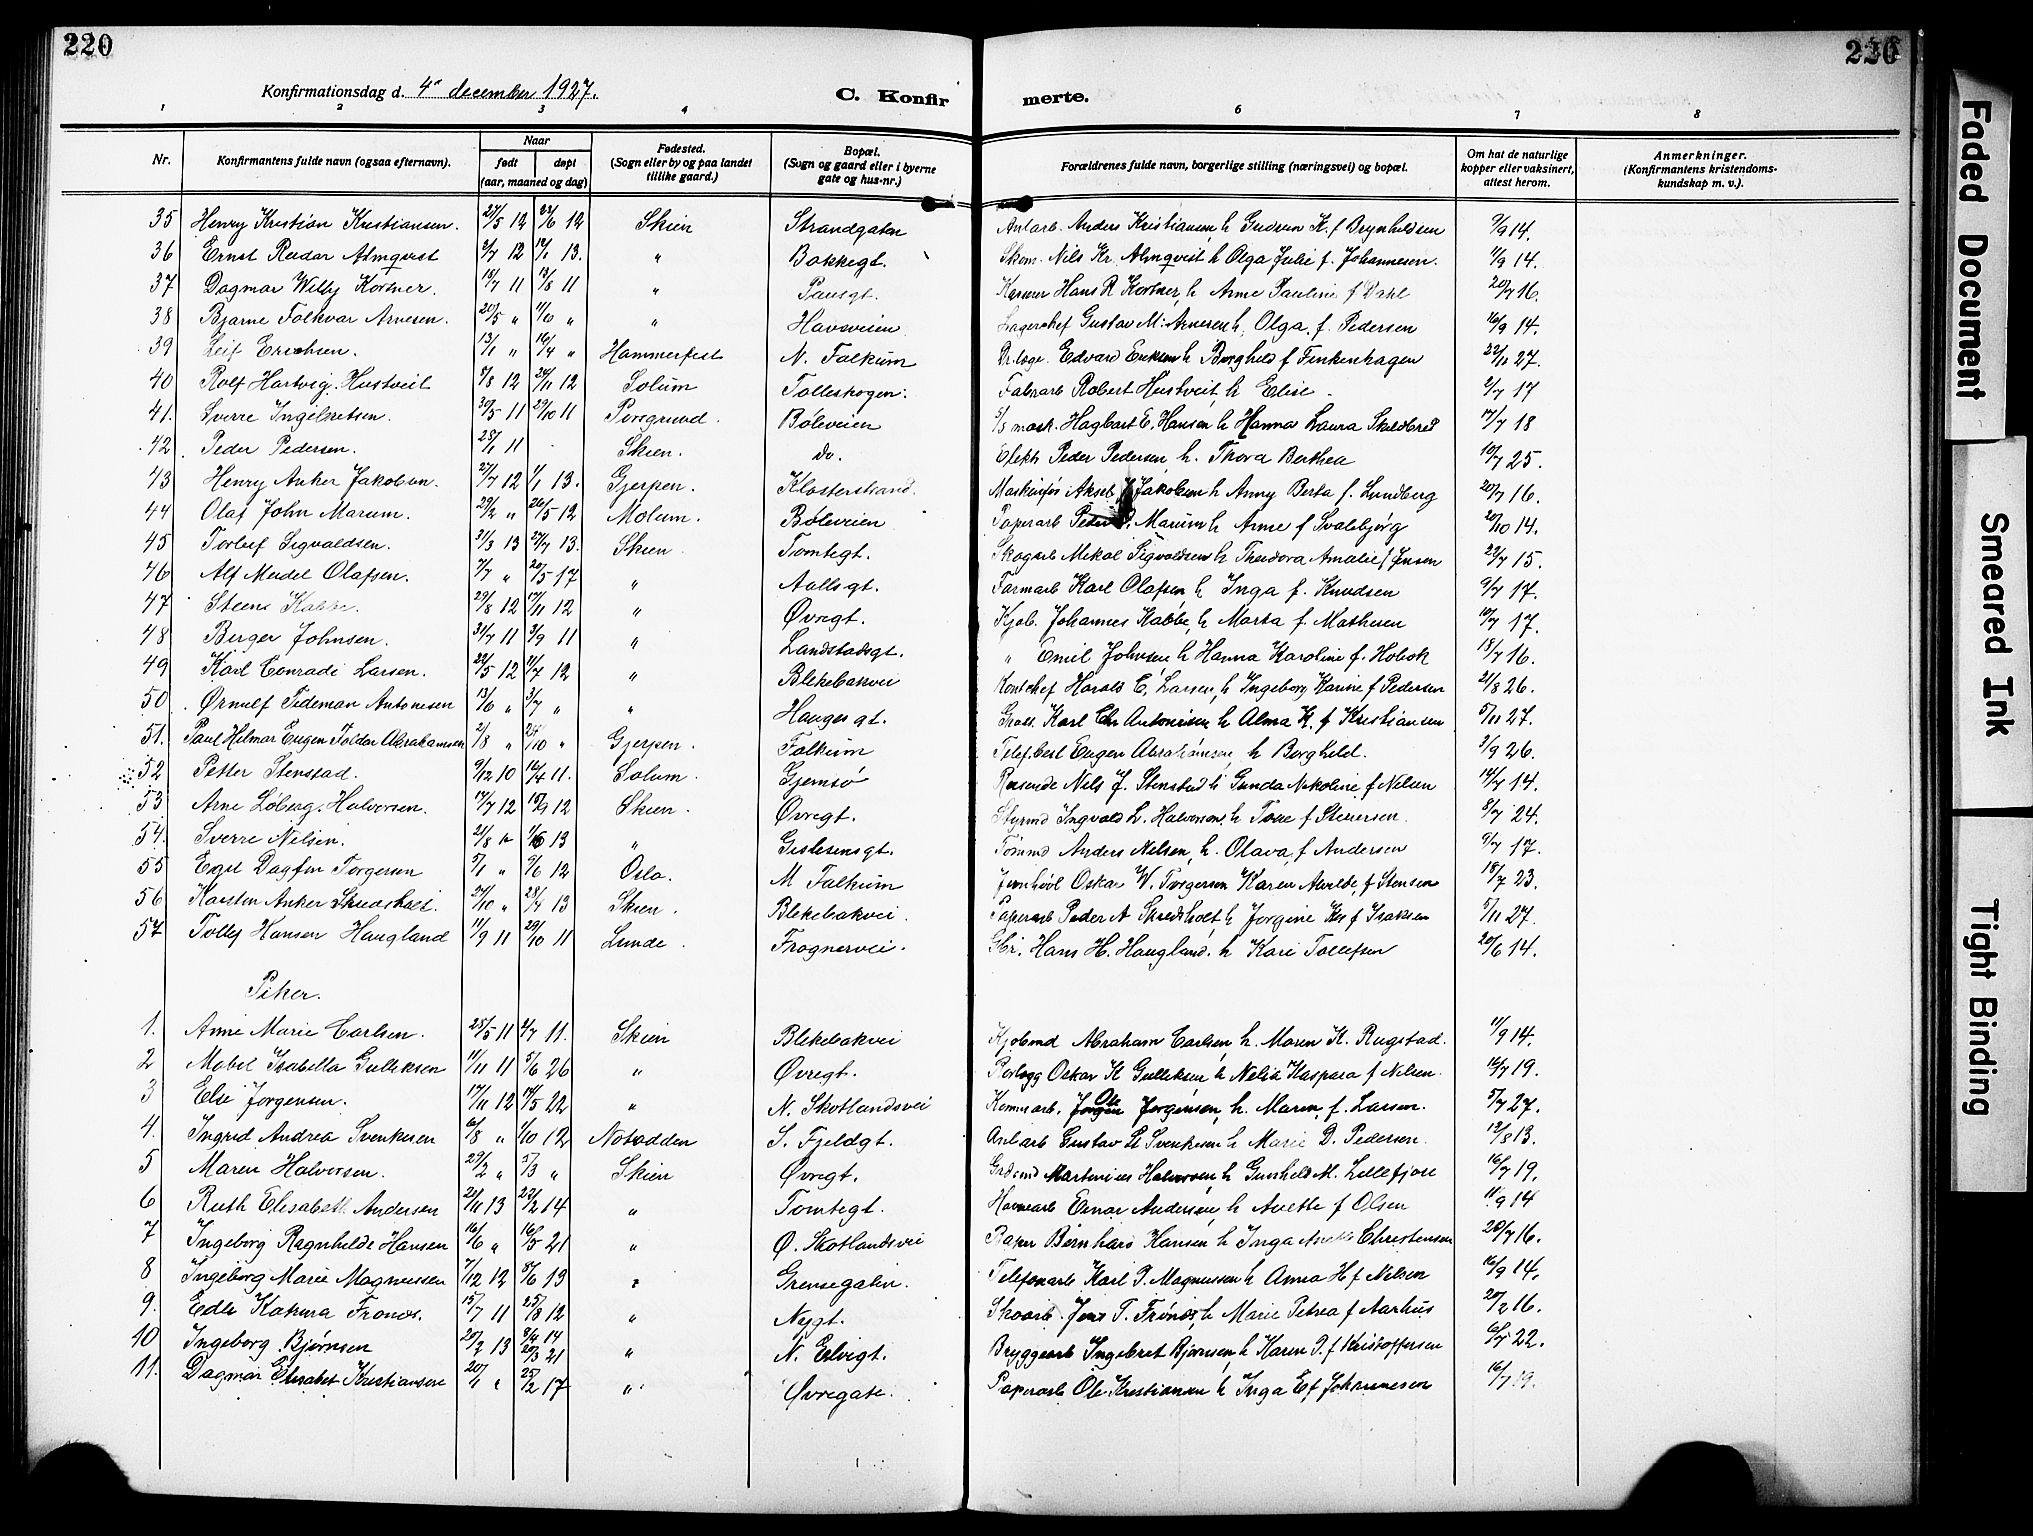 220
220
Konfirmationsdag d. 4de december 1927.
C. Konfirmerte.
1 2 3 4 6 7 8
Nr. Konfirmantens fulde navn (ogsaa efternavn). Naar født døpt (aar, maaned og dag) Fødested. (Sogn eller by og paa landet tillike gaard.) Bopæl. (Sogn og gaard eller i byerne gate og hus-nr.) Forældrenes fulde navn, borgerlige stilling (næringsvei) og bopæl. Om hat de naturlige kopper eller vaksinert, attest herom. Anmerkninger. (Konfirmantens kristendomskundskap m. v.).
35 Henry Kristian Kristiansen. 27/5 12 23/6 12 Skien Strandgaten Anders Kristiansen h Gudrun K. f Brynhildsen 9/9 14.
36 Ernst Reidar Almqvist 3/7 12 12/1 13. " Bakkegt. Skom. Nils Kr. Almqvist h Olga Julie f. Johannesen. 11/9 14.
37 Dagmar Willy Kortner. 15/7 11 13/8 11 " Pausgt. Hans R Kortner, h Anne Pauline f Dahl 20/7 16.
38 Bjarne Folkvar Arnesen. 20/5 " 11/6 " " Havaveien Lagerchef Gustav M. Arnesen h. Olga f. Pedersen 16/9 14.
39 Leif Erichsen. 13/1 " 16/4 " Hammerfest N. Falkum Edvard Eriksen h Borghild f Finkenhagen 22/11 27.
40 Rolf Hartvig Hustveit 5/8 12 24/11 12 Solum Tolleskogen. Fabrarb Robert Hustveit h Elise. 2/7 17
41. Sverre Ingebretsen. 30/5 11 29/10 11 Porsgrund. Bøleveien mask. Hagbart E. Hansen h Hanna Laura Skeldbred 17/7 18
42. Peder Pedersen. 28/1 11 Skien. do. Elekh Peder Pedersen h. Thora Berthea 10/7 25.
43 Henry Anker Jakobsen. 27/7 12 1/1 13. Gjerpen. Klosterstrand. Maskinfør Aksel Jakobsen h Anny Berta f. Lundberg 20/7 16.
44 Olaf John Marum. 29/2 " 26/5 12 Molum. Bøleveien Paperarb Peder P. Marum h Anne f Svalebjørg 20/10 14.
45 Torleif Sigvaldsen. 31/3 13 27/7 13. Skien Tomtegt. Skogarb Mikal Sigvaldsen h Theodora Amalie f Jensen 29/7 15.
46 Alf Meidel Olafsen. 7/7 " 20/5 17 " Aallsgt. Farmarb Karl Olafsen h Inga f. Knudsen 9/7 17.
47 Steene Kabbe. 29/8 12 17/11 12 " Øvregt. Kjøb. Johannes Kabbe, h Marta f. Mathesen 10/7 17.
48 Berger Johnsen. 31/7 11 3/9 11 " Landstadsgt. " Emil Johnsen h Hanna Karoline f. Hobok 18/7 16.
49 Karl Conradi Larsen. 22/5 12 11/7 12 " Blekebakvei Kontchef Harald C. Larsen, h Ingeborg Karine f Pedersen 21/8 26.
50. Ørnulf Tideman Antonesen 13/6 " 3/7 " " Haugesgt. Gross. Karl Chr Antonisen h Alma K. f Kristiansen 5/11 27.
51. Paul Hilmar Eugen Foldar Abrahamsen 2/8 " 25/10 " Gjerpen. Falkum Telef.best Eugen Abrahamsen h Borghild. 3/9 26.
52 Petter Stenstad. 9/12 10 16/4 11. Solum. Gjemsø Reisende Nils J. Stenstad h Gunda Nikoline f Nilsen 14/7 14.
53 Arne Løberg Halvorsen. 17/7 12 15/9 12 Skien. Øvregt. Styrmd Ingvald L. Halvorsen h Tone f Steversen. 8/7 24.
54. Sverre Nilsen. 21/8 " 1/6 13 " Gislesensgt. Tømmd Anders Nilsen, h. Olava f Andersen 9/7 17.
55 Egil Dagfin Torgersen 5/1 " 9/6 12 Oslo. M Falkum Jernhøvl Oskar W. Torgersen Karen Alvilde f Stensen 18/7 23.
56 Karsten Anker Skredsholt. 24/10 " 28/4 13 Skien. Blekebakvei. Paperarb Peder A Skredsholt h Jørgine Kr f Isaksen 5/11 27.
57 Tollef Hansen Haugland 11/9 11 29/10 11 Lunde. Frognervei. Gbr. Hans H. Haugland. h Kari Tollefsen 20/6 14.
Piker.
1. Anne Marie Carlsen. 25/5 11 2/7 11. Skien Blekebakvei Kjøbmd Abraham Carlsen h. Maren K. Rugstad. 11/9 14.
2 Mabel Isabella Gulliksen 11/11 11 5/6 26 " Øvregt. Oskar K Gulliksen h Nelia Kaspara f Nilsen. 16/7 19.
3 Else Jørgensen. 17/11 12 14/5 22 " N. Skotlandsvei Ole Jørgensen, h. Maren f. Larsen. 5/7 27.
4. Ingrid Andrea Svenkesen 6/8 " 1/10 12 Notodden S. Fjeldgt. Gustav Svenkesen h Marie D. Pedersen. 12/8 13.
5 Maren Halvorsen. 29/2 " 5/3 " Skien Øvregt. Martinius Halvorsen, h Gunhild M. Lillefjære 16/7 19.
6 Ruth Elisabeth Andersen 20/11 13 22/2 14 " Tomtegt. Havnearb Einar Andersen h Anette f Olsen 11/9 14
7 Ingeborg Ragnhilde Hansen 16/6 " 16/5 21 " Ø. Skotlandsvei Paper Bernhard Hansen h Inga Christensen 20/7 16.
8 Ingeborg Marie Magnussen 7/12 12 8/6 13 " Grensegaten. Telefonarb Karl P. Magnussen h Anna H f Nilsen 16/9 14.
9. Edle Katrina Frønes. 15/7 11 25/8 12 " Nygt. Skoarb. Jens T. Frønes, h Marie Petrea f Aarhus 20/2 16.
10 Ingeborg Bjørnsen 20/2 13 20/3 21 " N. Elvegt. Bryggearb Ingebret Bjørnsen h Karen P. f Kristoffersen 6/7 22.
11. Dagmar Elisabet Kristiansen 20/1 " 25/2 17 " Øvregate. Paperarb Ole Kristiansen h Inga E f Johannesen 16/7 19.
Faded Document
Smeared Ink
Tight Binding